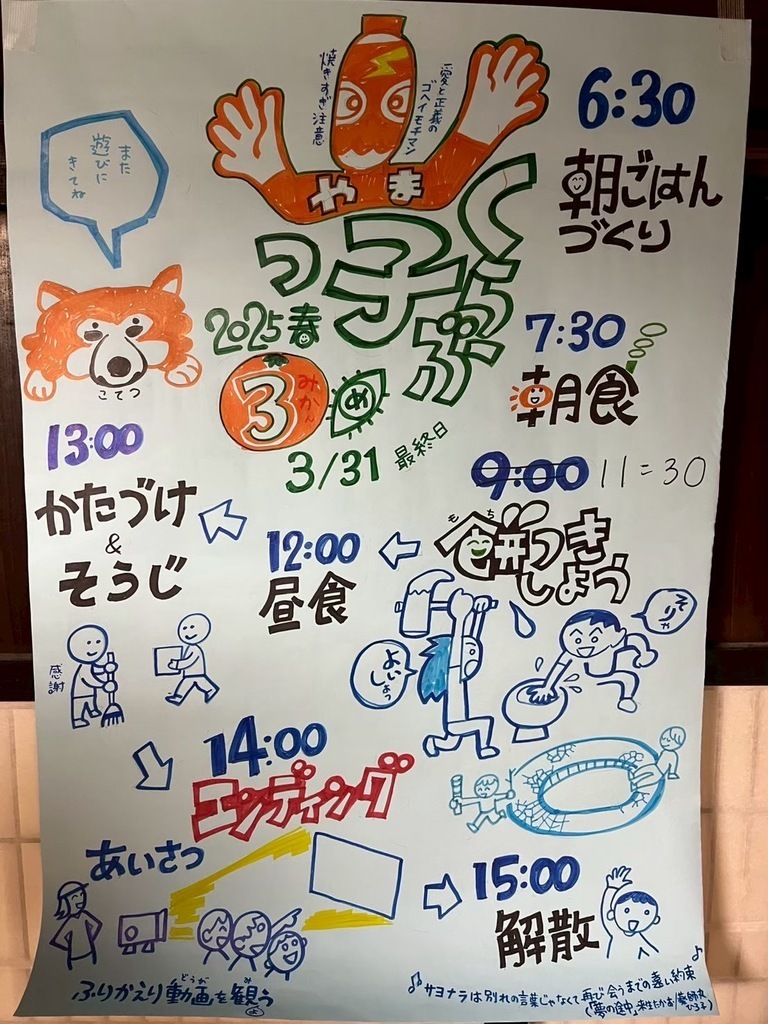 愛と正義の
ゴヘイモチマン
焼きすぎ注意
やま
っ子くらぶ
2025春
3みかんめ
3/31 最終日
また
遊びに
きてね
こてつ
6:30
朝ごはん
づくり
7:30
朝食
9:00 11:30
もち
餅つき
しよう
そりゃ
よいしょっ
12:00
昼食
13:00
かたづけ
&
そうじ
感謝
14:00
エンディング
あいさつ
どうが み
ふりかえり動画を観る
15:00
解散
♪サヨナラは別れの言葉じゃなくて再び会うまでの遠い約束♪
(「夢の途中」来生たかお/薬師丸
ひろ子)